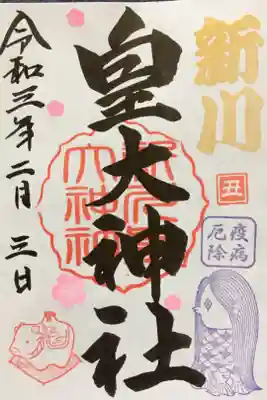 新川
皇大神社
令和三年二月三日
丑
疫病
厄除